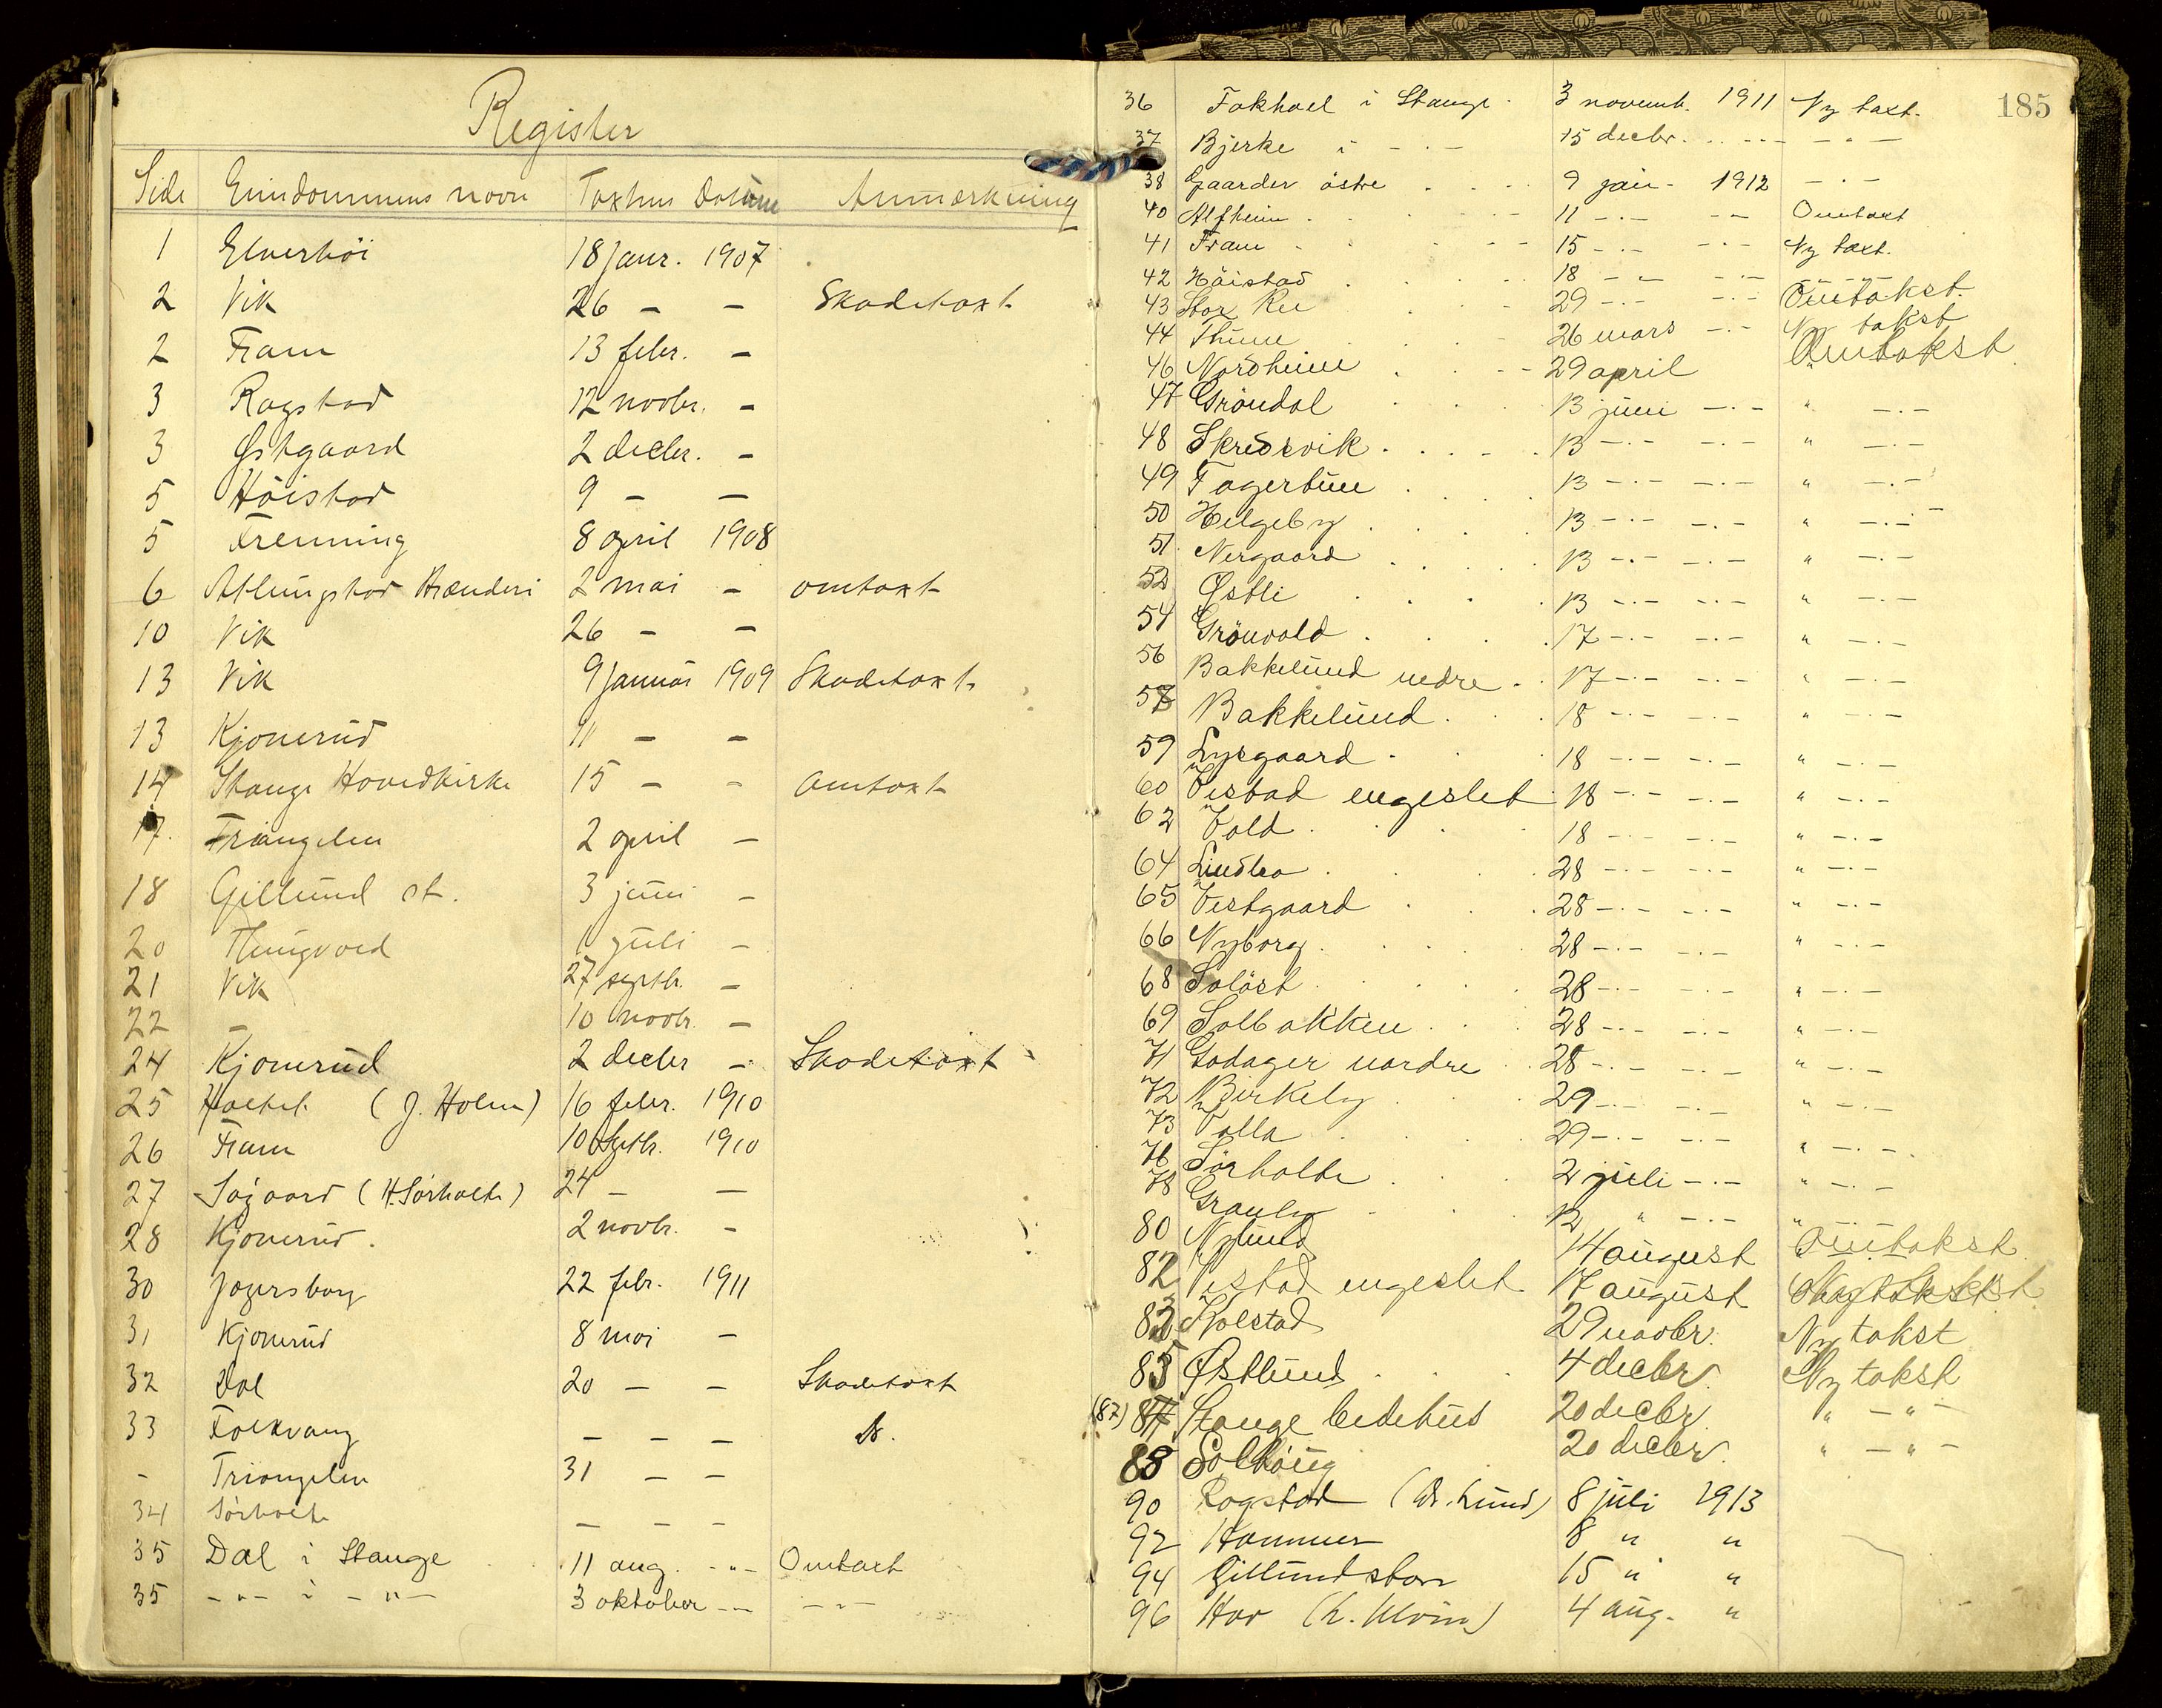 Register
Side Eiendommens navn Taxtens Datum Anmærkning
1 Elverhöi 18 Janr. 1907
2 Vik 26 - - Skadetaxt
2 Fram 13 febr. -
3 Rogstad 12 novbr. -
3 Østgaard 2 decbr. -
5 Höistad 9 - -
5 Frenning 8 april 1908
6 Atlungstad Brænderi 2 mai - omtaxt
10 Vik 26 - -
13 Vik 9 Januar 1909 Skadetaxt
13 Kjonerud 11 - -
14 Stange Hovedkirke 15 - - omtaxt
17. Triangelen 2 april -
18 Gillund st. 3 juni -
20 Thingvold 1 juli -
21 Vik 27 septbr. -
22 - 10 novbr. -
24 Kjonerud 2 decbr - Skadetaxt
25 Hoel (J. Holm) 16 febr. 1910
26 Fram 10 Septbr. 1910
27 (H. Sörholte) 24 - -
28 Kjonerud. 2 novbr. -
30 Jagersborg 22 febr. 1911
31 Kjonerud 8 mai -
32 Dal 20 - - Skadetaxt
33 Folkvang - - - do.
- Triangelen 31 - -
34 Sörholte - - -
35 Dal i Stange 11 aug. -"- Omtaxt
35 -"- i -"- 3 oktober -"- -"-
185
36 Fokhoel i Stange. 3 novemb. 1911 Ny taxt.
37 Bjerke i -"- 15 decbr. -"- -"-
38 Gaarder östre 9 jan. 1912 -"-
40 Alfheim 11 -"- -"- Omtaxt
41 Fram 15 -"- -"- Ny taxt.
42 Höistad 18 -"- -"- -"-
43 Stor Ree 29 -"- -"- Omtakst.
44 Thune 26 mars -"- Ny takst
46 Nordheim 29 april Omtakst
47 Gröndal 13 juni -"- " -"-
48 Skredsvik 13 -"- -"- " -"-
49 Fagertun 13 -"- -"- " -"-
50 Helgeby 13 -"- -"- " -"-
51 Nergaard 13 -"- -"- " -"-
52 Østli 13 -"- -"- " -"-
54 Grönvold 17 -"- -"- " -"-
56 Bakkelund nedre 17 -"- -"- " -"-
57 Bakkelund 18 -"- -"- " -"-
59 Lysgaard 18 -"- -"- " -"-
60 Vestad engeslet 18 -"- -"- " -"-
62 Vold 18 -"- -"- " -"-
64 Lindbo 28 -"- -"- " -"-
65 Vestgaard 28 -"- -"- " -"-
66 Nyborg 28 -"- -"- " -"-
68 Soløst 28 -"- -"- " -"-
69 Solbakken 28 -"- -"- " -"-
71 Godager nordre 28 -"- -"- " -"-
72 Birkely 29 -"- -"- " -"-
73 Volla 29 -"- -"- " -"-
76 Sörholte 2 juli -"- " -"-
78 Granly 12 " -"- " -"-
80 Nylund 14 august Omtakst
82 Vestad engeslet 17 august
83 Kolstad 29 novbr. Ny takst
85 Østlund 4 decbr. Ny takst
(87) 87 Stange bedehus 20 decbr " -"-
88 Solhaug 20 decbr. " -"-
90 Rogstad (W. Lund) 8 juli 1913
92 Hammer 8 " "
94 Gillundstrøm 15 " "
96 Hov (L. Ulvin) 4 aug. "